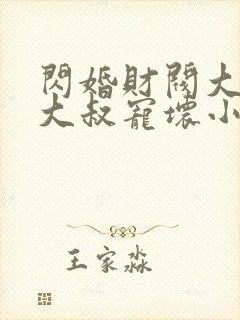 閃婚財閥大
大叔寵壞小
王家淼